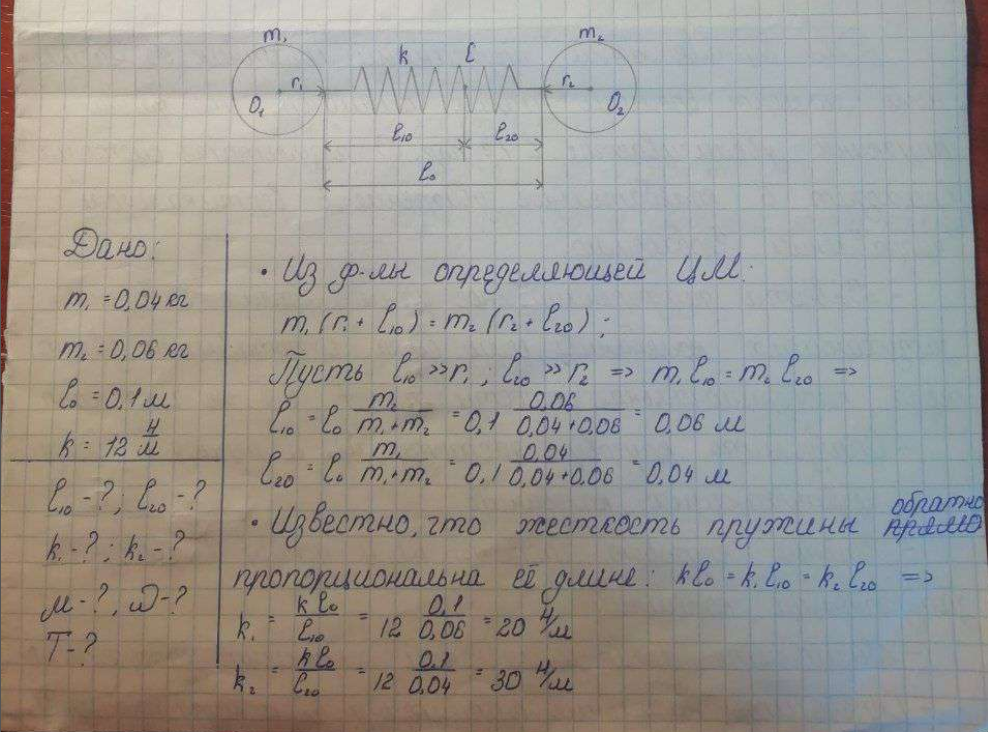 m₁ m₂
k C
r₁ r₂
O₁ O₂
l₁₀ l₂₀
l₀
Дано:
m₁ = 0,04 кг
m₂ = 0,06 кг
l₀ = 0,1 м
k = 12 Н/м
l₁₀ - ?; l₂₀ - ?
k₁ - ?; k₂ - ?
μ - ?, ω - ?
T - ?
• Из ф-лы определяющей ЦМ:
m₁(r₁ + l₁₀) = m₂(r₂ + l₂₀);
Пусть l₁₀ >> r₁; l₂₀ >> r₂ => m₁l₁₀ = m₂l₂₀ =>
l₁₀ = l₀ m₂/(m₁+m₂) = 0,1 0,06/(0,04+0,06) = 0,06 м
l₂₀ = l₀ m₁/(m₁+m₂) = 0,1 0,04/(0,04+0,06) = 0,04 м
• Известно, что жесткость пружины обратно
пропорциональна её длине: kl₀ = k₁l₁₀ = k₂l₂₀ =>
k₁ = kl₀/l₁₀ = 12 0,1/0,06 = 20 Н/м
k₂ = kl₀/l₂₀ = 12 0,1/0,04 = 30 Н/м